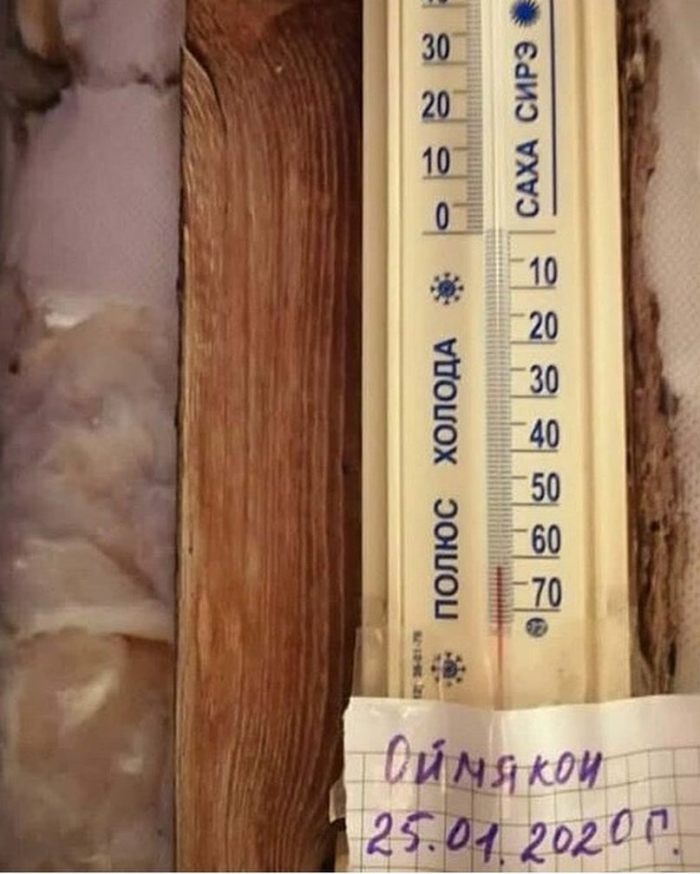 30
20
10
0
САХА СИРЭ
10
20
30
40
50
60
70
ПОЛЮС ХОЛОДА
Оймякон
25.01.2020 г.